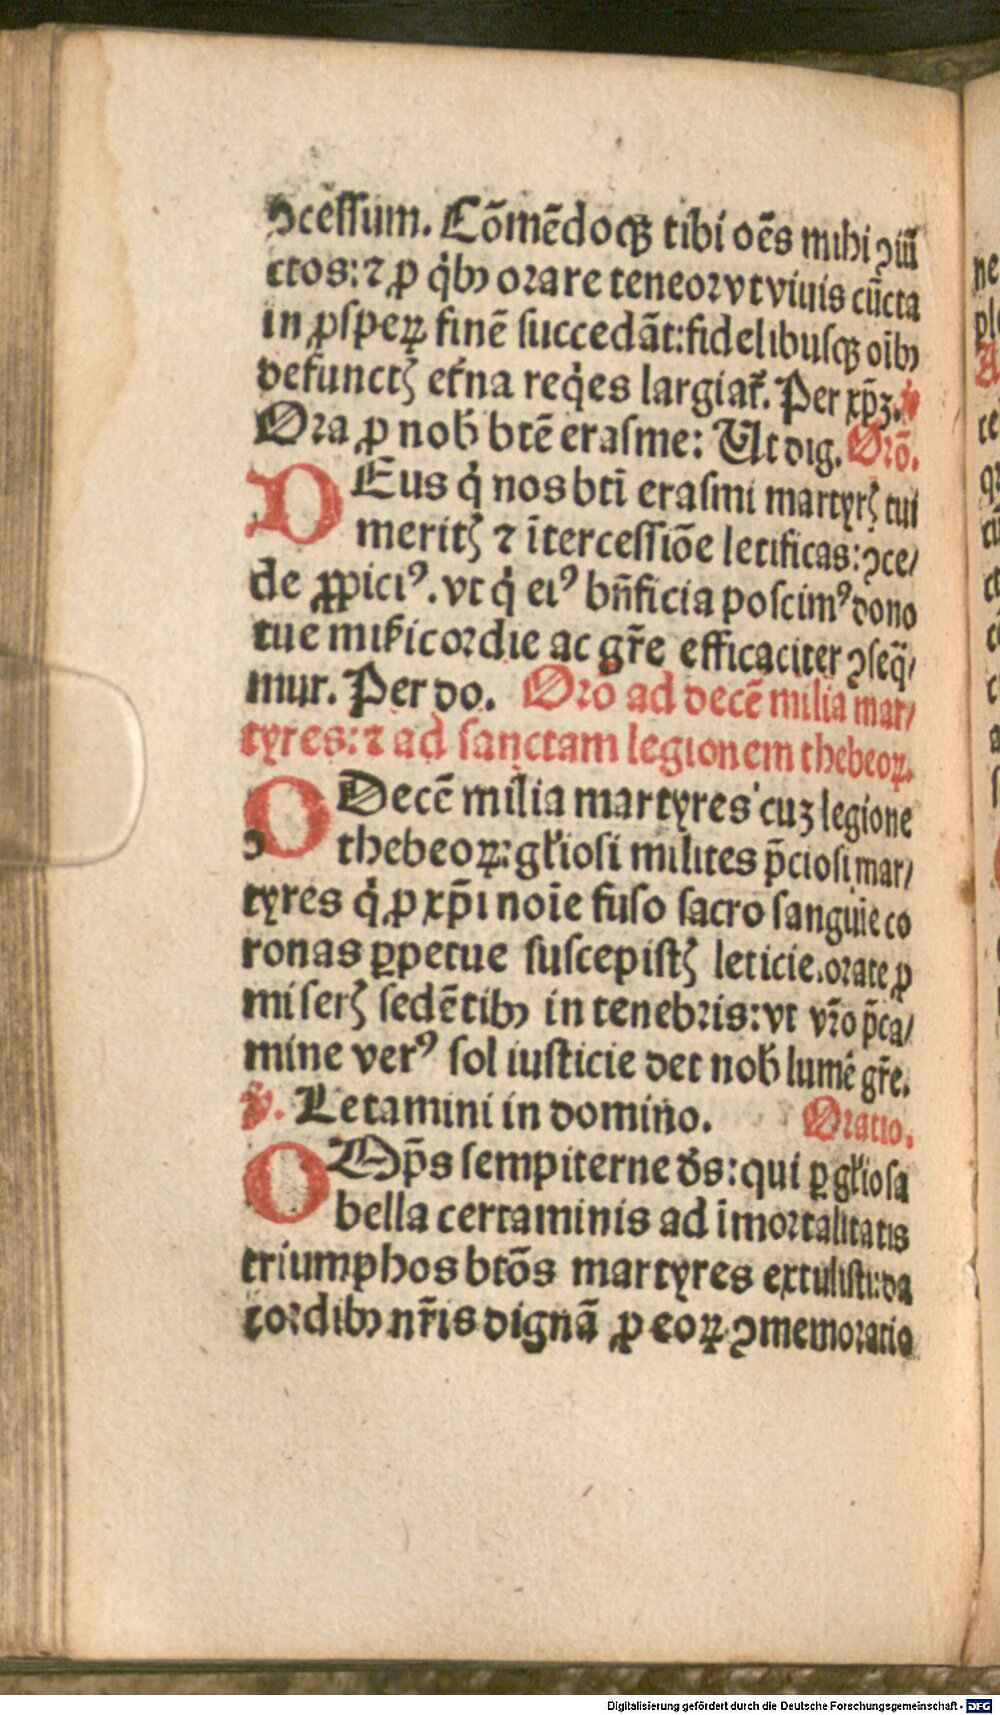 ꝯceſſum. Cõmẽdoqꝫ tibi oẽs mihi ꝯiũ
ctos: ⁊ ꝓ q̇bꝰ orare teneor vt viuis cũcta
in ꝓſpeꝝ finẽ ſuccedãt: fidelibuſqꝫ oĩbꝰ
defunctꝭ et̃na req̇es largiat̃. Per xp̃ꝫ. ℣
Ora ꝓ nob̃ btẽ eraſme: Ut dig. Orõ.
DEus q̇ nos bti̇ eraſmi martyrꝭ tui
meritꝭ ⁊ ĩterceſſiõe letificas: ꝯce/
de ꝓpiciꝰ. vt q̇ eiꝰ bñficia poſcimꝰ dono
tue miẜicordie ac gr̃e efficaciter ꝯſeq̃/
mur. Per do. Orõ ad decẽ milia mar/
tyres: ⁊ ad ſanctam legionem thebeoꝝ.
O Decẽ milia martyres cuꝫ legione
thebeoꝝ: gl̃ioſi milites p̃cioſi mar/
tyres q̇ ꝓ xp̃i noĩe fuſo ſacro ſanguĩe co
ronas ꝑpetue ſuſcepiſtꝭ leticie. orate ꝓ
miſerꝭ ſedẽtibꝰ in tenebris: vt vr̃o p̃ca/
mine verꝰ ſol iuſticie det nob̃ lumẽ gr̃e.
℣. Letamini in domino. Oratio.
O Op̃s ſempiterne ds̃: qui ꝑ gl̃ioſa
bella certaminis ad ĩmortalitatis
triumphos btõs martyres extuliſti: da
cordibꝰ nr̃is dignã ꝓ eoꝝ ꝯmemoratio
Digitalisierung gefördert durch die Deutsche Forschungsgemeinschaft - DFG